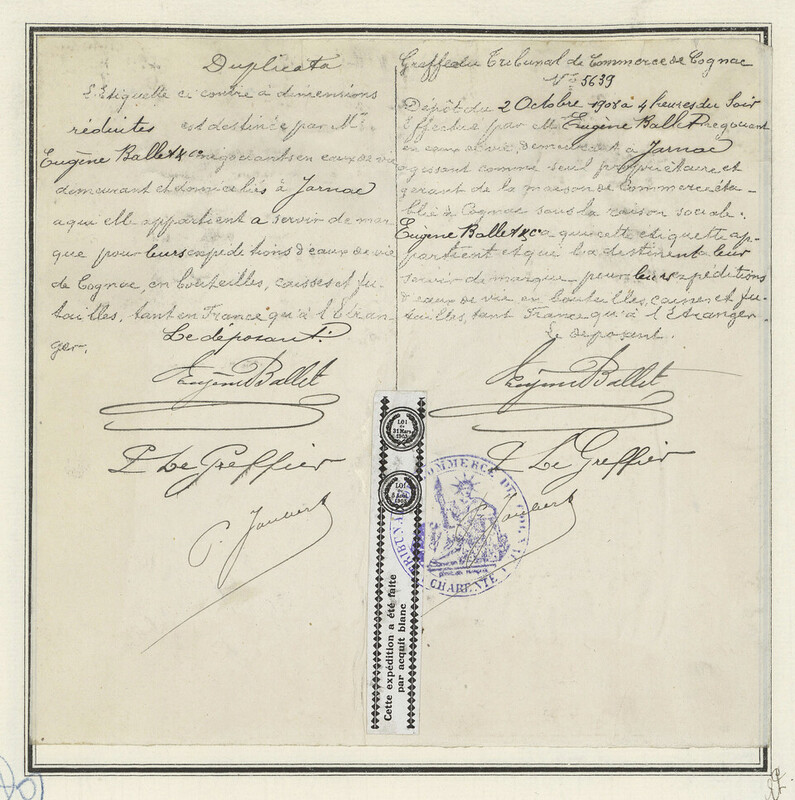 Duplicata
L'Etiquette ci contre à dimensions
réduites est destinée par MM
Eugène Ballet & Cie négociants en eaux de vie
demeurant et domiciliés à Jarnac
a qui elle appartient a servir de mar-
que pour leurs expéditions d'eaux de vie
de Cognac, en bouteilles, caisses et fu-
tailles, tant en France qu'à l'Etran-
ger,
Le déposant:
Eugène Ballet
P Le Greffier
P. Joubert
Greffe du Tribunal de Commerce de Cognac
No 5639
Dépôt du 2 Octobre 1908 a 4 heures du Soir
Effectué par M Eugène Ballet négociant
en eaux de vie, demeurant à Jarnac
agissant comme seul propriétaire et
gérant de la maison de Commerce éta-
blie à Cognac sous la raison sociale.
Eugène Ballet & Cie a qui cette etiquette ap-
partient et qui la destinent a leur
servir de marque pour leurs expéditions
d'eaux de vie en bouteilles, caisses et fu-
tailles, tant France qu'à l'Etranger.
Le déposant.
Eugène Ballet
P Le Greffier
P. Joubert
LOI
du
31 Mars
1903
LOI
1903
Cette expédition a été faite
par acquit blanc
TRIBUNAL DE COMMERCE DE COGNAC
CHARENTE